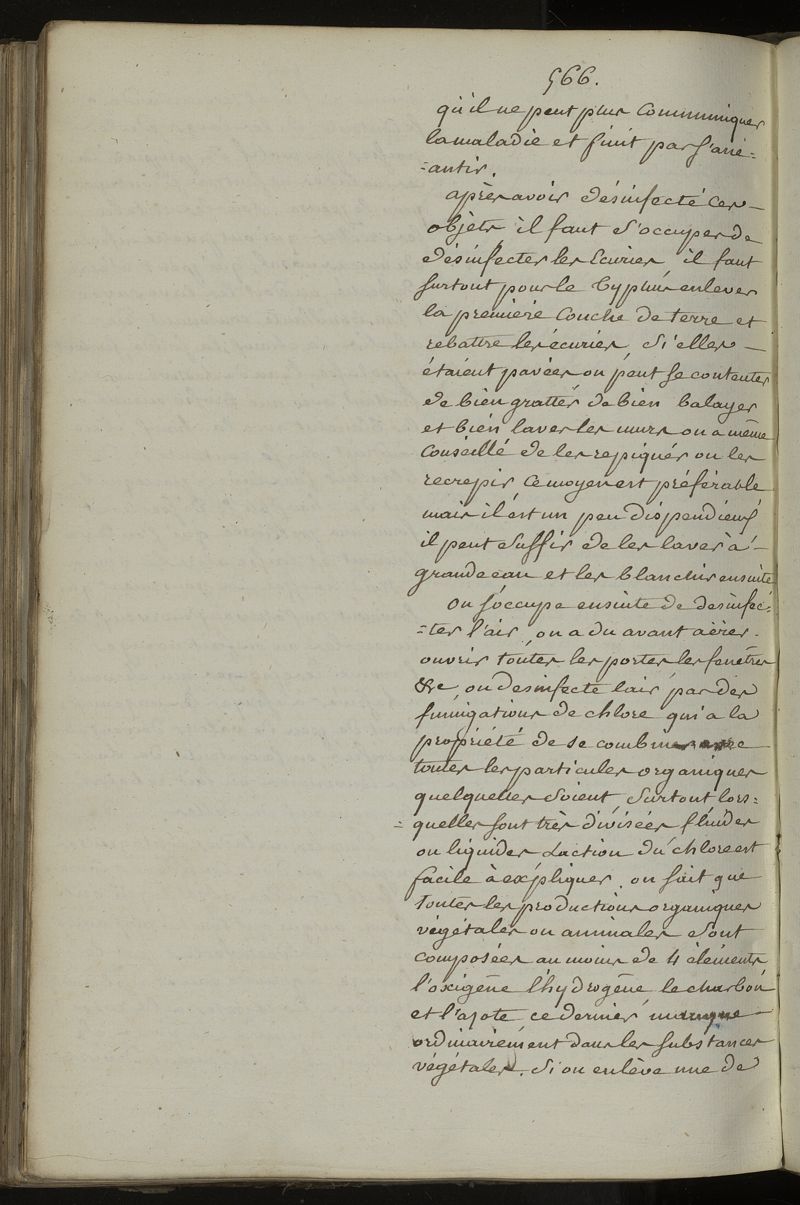 566.
qu'il ne peut plus communiquer
la maladie et finit par s'ané=
=antir.
après avoir désinfecté ces
objets il faut s'occuper de
désinfecter les Ecuries il faut
surtout pour le typhus enlever
la premiere Couche de terre et
rebattre les écuries, si elles
étaient pavées on peut se contenter
de bien gratter de bien balayer
et bien laver les murs on a même
Conseillé de les repiquer ou les
recrepir ce moyen est préférable
mais il est un peu dispendieux
il peut suffir de les laver à
grande eau et les blanchir ensuite
on s'occupe ensuite de desinfec=
=ter l'air, on a du avant aërer
ouvrir toutes les portes les fenêtres
&c, on desinfecte l'air par des
fumigations de chlore qui a la
propriété de se combiner
toutes les particules organiques
quelquelles soient, surtout lors=
=quelles sont très divisées fluides
ou liquides L'action du chlore est
facile à expliquer, on sait que
toutes les productions organiques
végétales ou animales sont
composées au moins de 4 éléments
l'oxigène l'hydrogène le charbon
et l'azote ce dernier manque
ordinairement dans les substances
végétales. Si on enlève une de